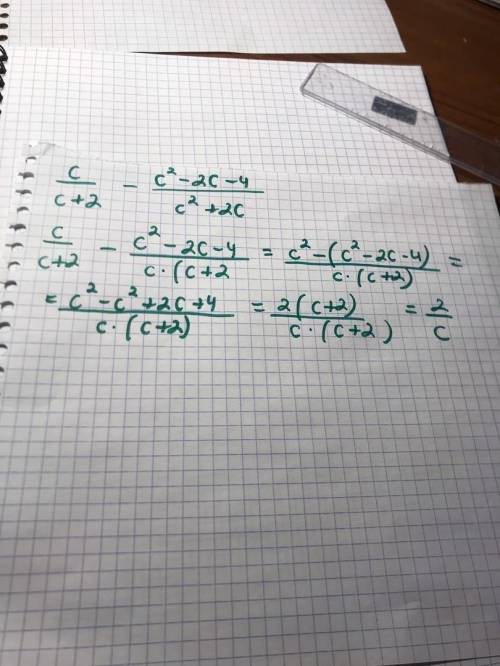 c/(c+2) - (c²-2c-4)/(c²+2c)
c/(c+2) - (c²-2c-4)/(c·(c+2) = (c²-(c²-2c-4))/(c·(c+2)) =
= (c²-c²+2c+4)/(c·(c+2)) = 2(c+2)/(c·(c+2)) = 2/c